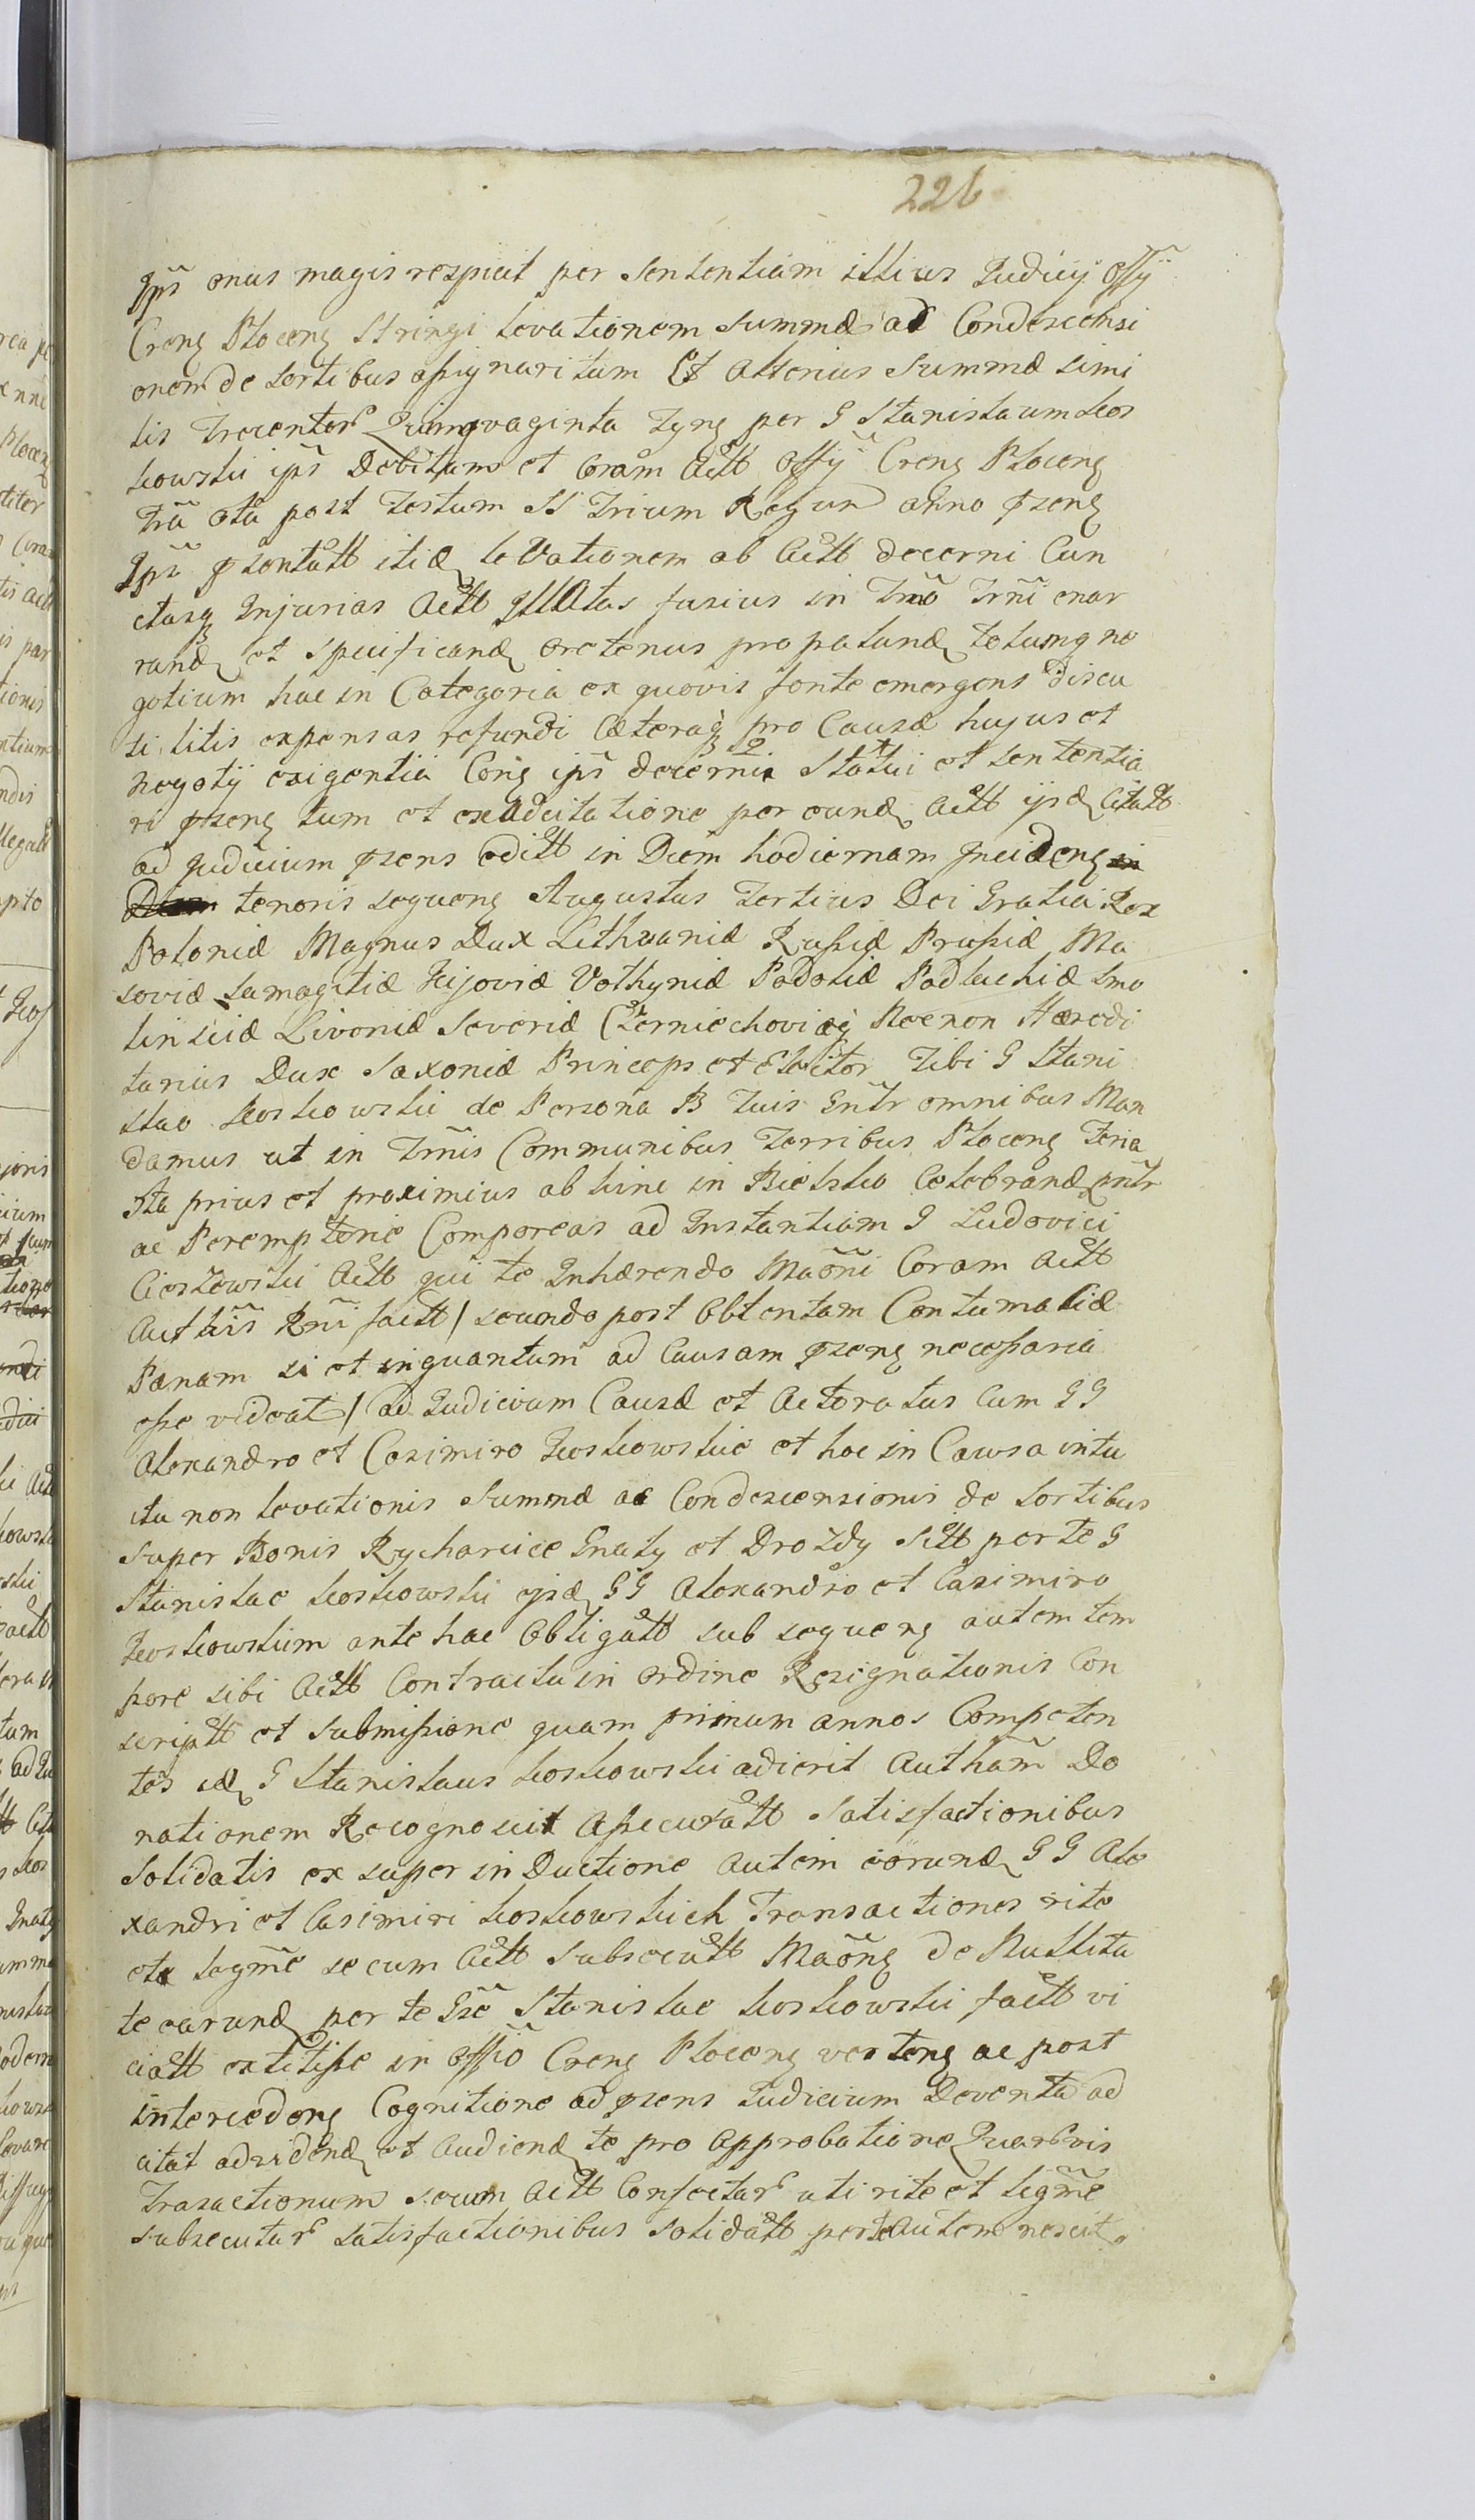 226
Ipſ onus magis respicit per Sententiam illius Iudicij Offij
Creng Ploceng Stringi levationem Summæ ad Condescensi
onem de Sortibus aſsignari tum Et Alterius Summæ simi
lis Trecentor Quinquaginta Tyng per G Stanislaum Kos
kowski ipſ Debitum et Coram Actt Offij Creng Ploceng
Fria 6ta post Festum SS Trium Regum anno pseng
Ipſ psentatt itid levationem ab Actt decerni Cun
ctasq Injurias Actt Illatas fusius in Tmo Trni enar
rand et Specificand oretenus propaland totumq ne
gotium hac in Categoria ex quovis fonte emergens Discu
ti litis expensas refundi Cæteraq pro Causæ hujus et
negotij exigentia Cong ipſ decerni Statui et Sententia
ri pseng tum et exadcitatione per eund Actt ijsd Citatt
ad Iudicium psens editt in Diem hodiernam Incideng
tenoris sequeng Augustus Tertius Dei Gratia Rex
Poloniæ Magnus Dux Lithvaniæ Ruſsiæ Pruſsiæ Ma
soviæ Samogitiæ Kijoviæ Volhyniæ Podoliæ Podlachiæ Smo
linsciæ Livoniæ Severiæ Czerniechoviæq Necnon Hæredi
tarius Dux Saxoniæ Princeps et Elector Tibi G Stani
slao Koskowski de Persona B Tuis Gntr omnibus Man
damus ut in Tmis Communibus Terribus Ploceng Feria
6ta prius et proximius ab hinc in Bielsko Celebrand pntr
ac Peremptorie Compareas ad Instantiam G Ludovici
Cieszewski Actt qui te Inhærendo Maõni Coram Actt
Authis Rni factt / secundo post Obtentam Contumaciæ
Pænam si et inquantum ad Causam pseng neceſsaria
eſse videat / ad Iudicium Causæ et Actoratus cum GG
Alexandro et Casimiro Koskowskie et hoc in Cawsa intu
itu non levationis Summæ ac Condescensionis de Sortibus
Super Bonis Rycharcice Gnaty et Drozdy Sitt per te G
Stanislae Koskowski ijsd GG Alexandro et Casimiro
Koskowskim ante hac Obligatt sub sequeng autem tem
pore sibi Actt Contractu in ordine Resignationis Con
scriptt et Submiſsione quam primum annos Competen
tes id G Stanislaus Koskowski adierit Autham Do
nationem Recognoscit Aſsecuratt Satisfactionibus
Solidatis ex super inDuctione autem eorund GG Ale
xandri et Casimiri Koskowskich Transactiones rite
etc legme secum Actt Subsecutt Maõng de Nullita
te earund per te Gse Stanislae Koskowski factt vi
ciatt extitiſse in Offio Creng Ploceng verteng ac post
interceden̄g Cognitione ad psens Iudicium Deventa ad
citat ad vidend et Audiend te pro Approbatione Quarvis
Trasactionum Secum Actt Confectar uti rite et legme
Subsecutar Satisfactionibus Solidatt per te autem nescit